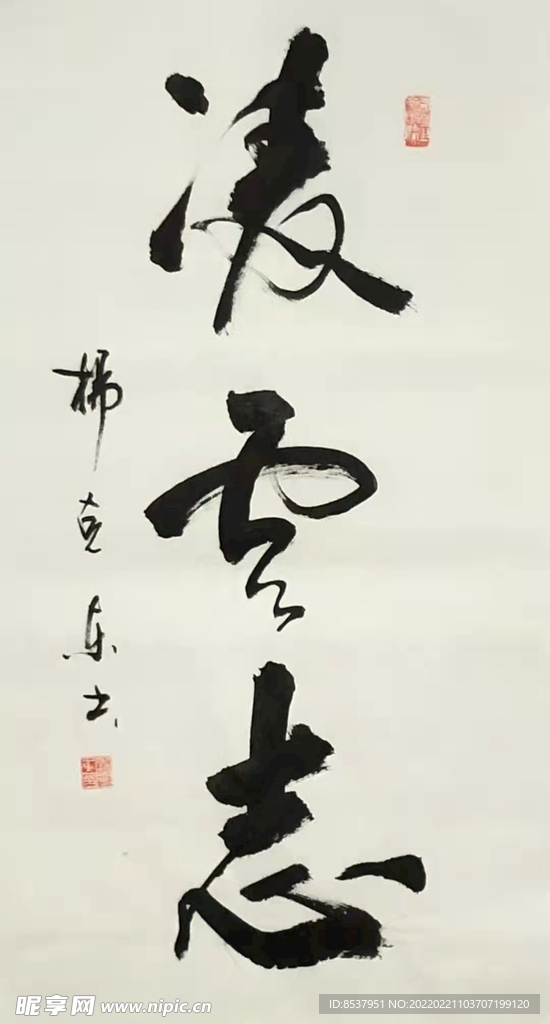 凌云志
杨克东书
昵享网 www.nipic.cn
ID:8537951 NO:20220221103707199120